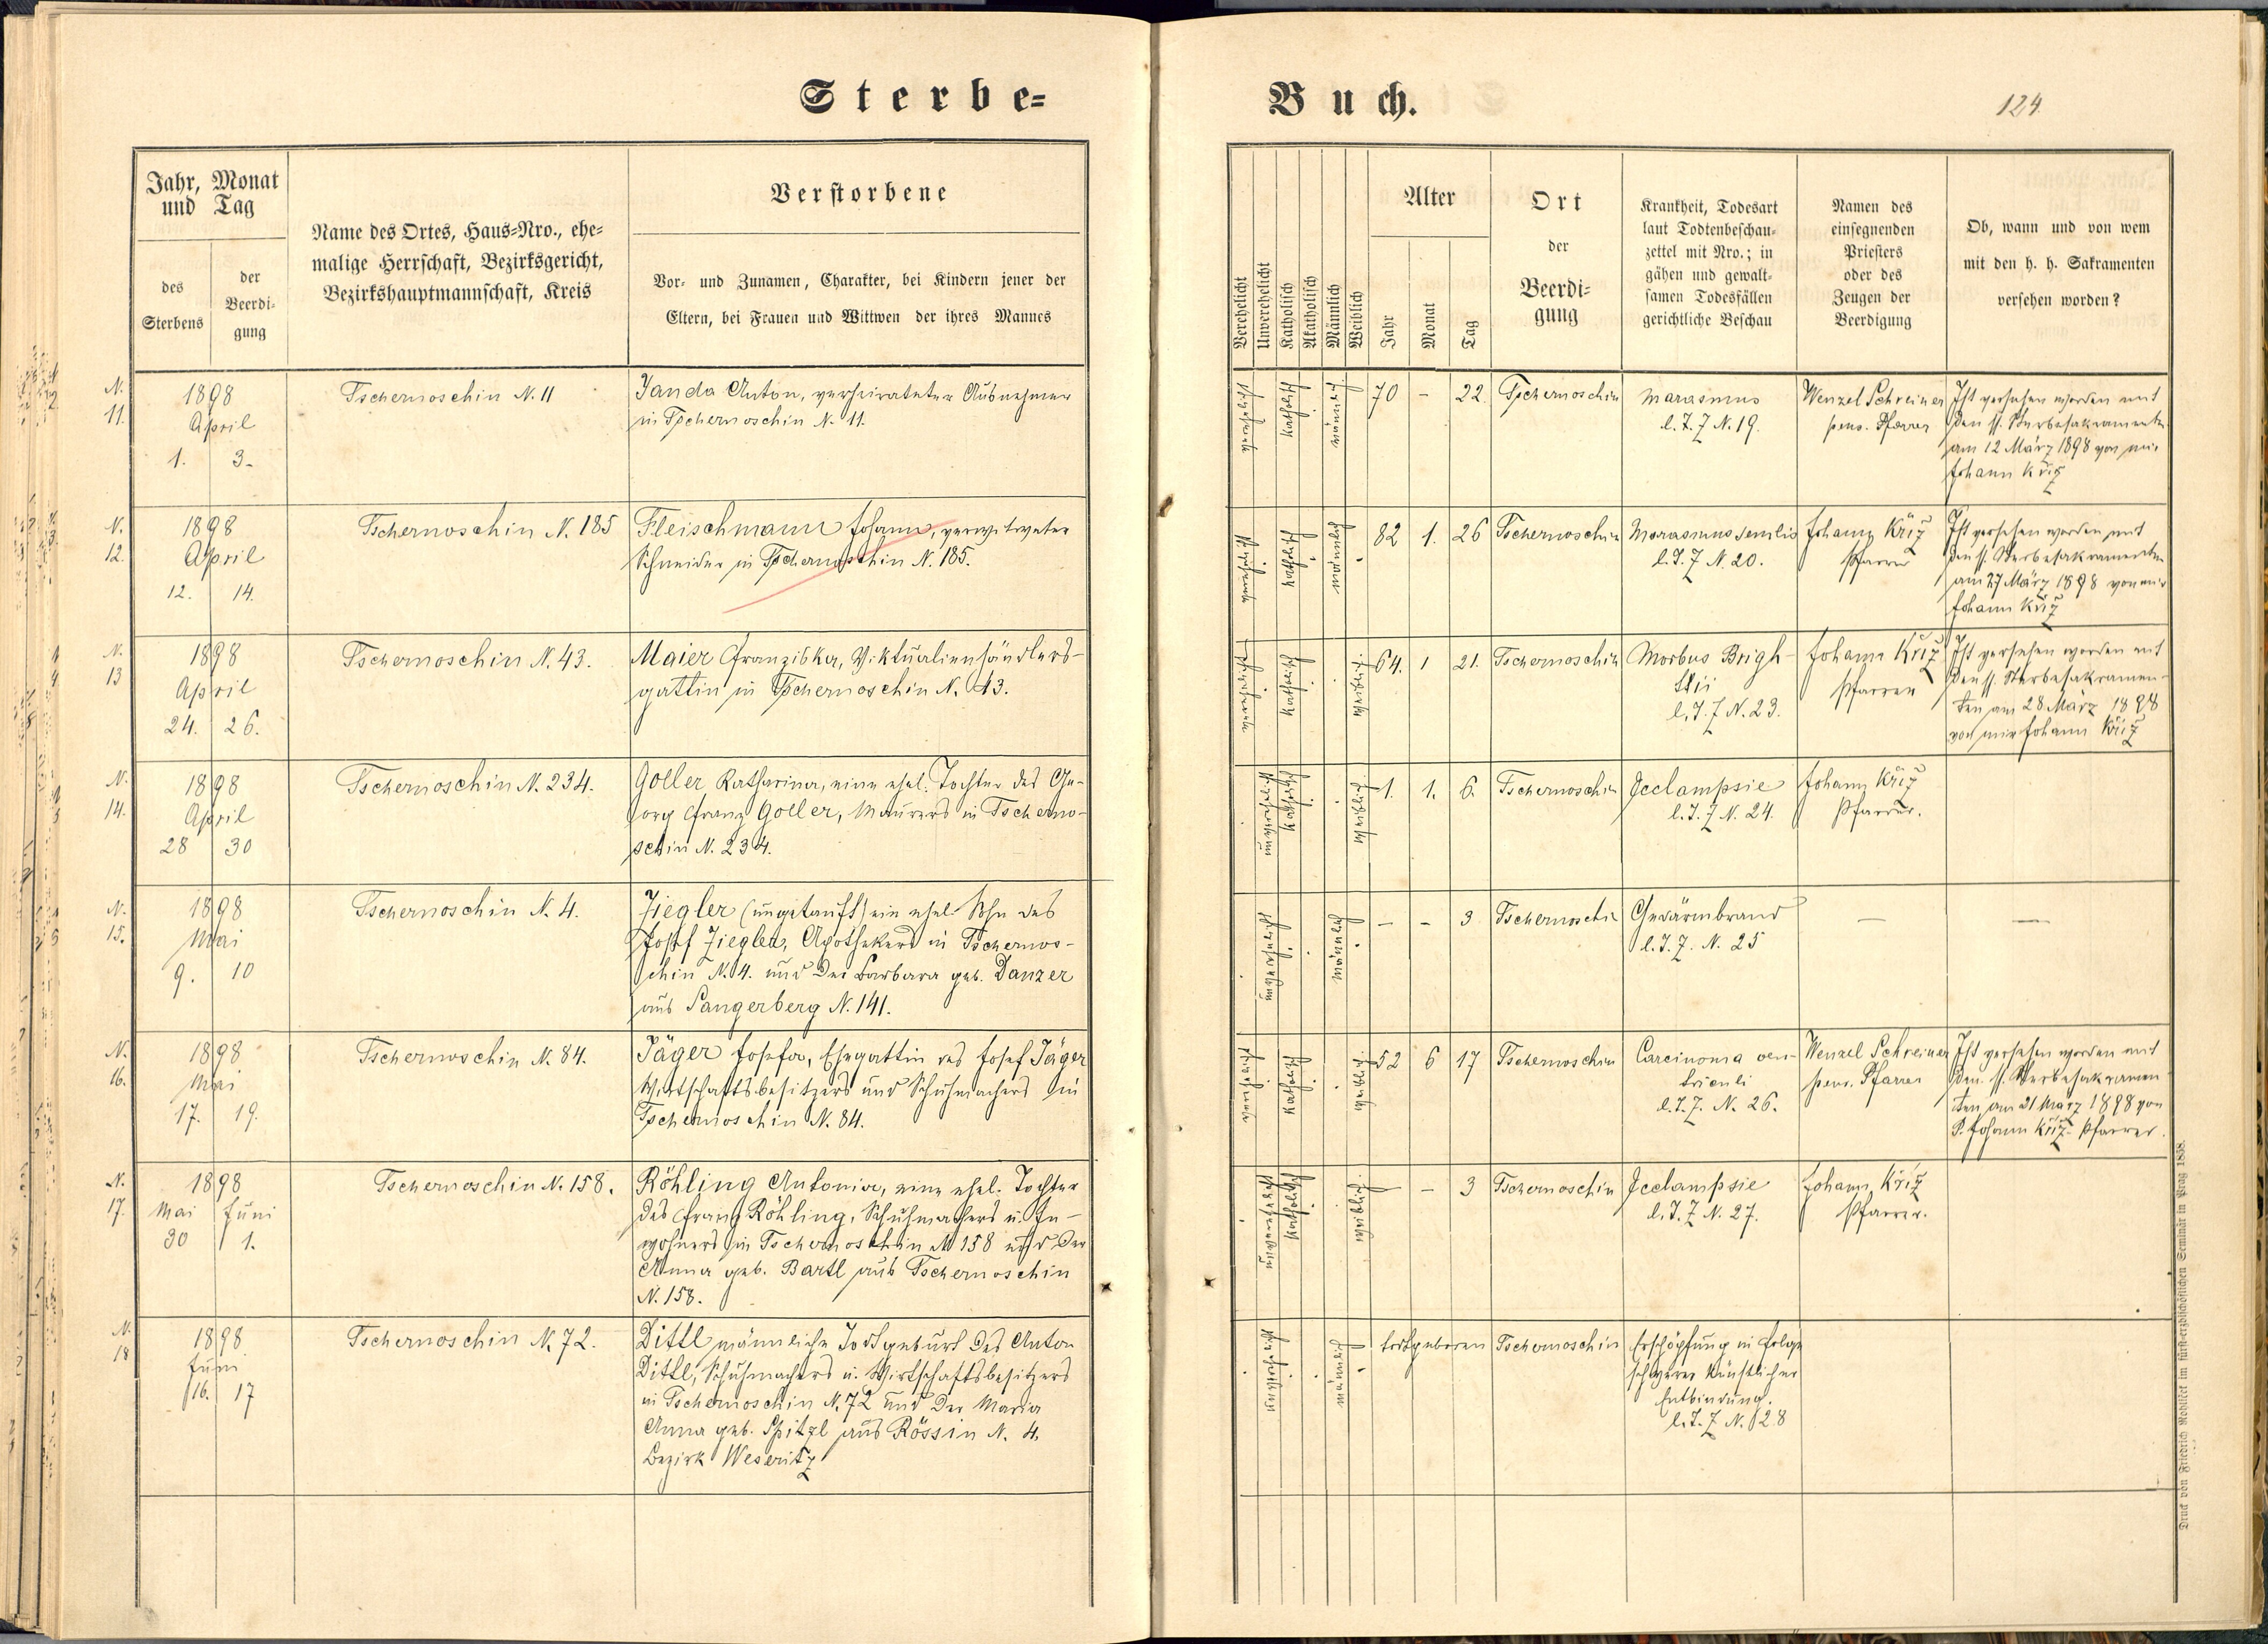 Sterbe=
Buch.
124
Jahr, Monat
und Tag
des
Sterbens
der
Beerdi-
gung
Name des Ortes, Haus=Nro., ehe=
malige Herrschaft, Bezirksgericht,
Bezirkshauptmannschaft, Kreis
Verstorbene
Vor- und Zunamen, Charakter, bei Kindern jener der
Eltern, bei Frauen und Wittwen der ihres Mannes
Verehelicht
Unverehelicht
Katholisch
Akatholisch
Männlich
Weiblich
Alter
Jahr
Monat
Tag
Ort
der
Beerdi=
gung
Krankheit, Todesart
laut Todtenbeschau-
zettel mit Nro.; in
gähen und gewalt-
samen Todesfällen
gerichtliche Beschau
Namen des
einsegnenden
Priesters
oder des
Zeugen der
Beerdigung
Ob, wann und von wem
mit den h. h. Sakramenten
versehen worden?
N.
11.
1898
April
1. 3.
Tschernoschin N. 11
Janda Anton, verheirateter Ausnehmer
in Tschernoschin N. 11.
verehelicht
katholisch
männlich
70 - 22.
Tschernoschin
Marasmus
l. T. Z N. 19.
Wenzel Schreiner
pens. Pfarrer
Ist versehen worden mit
den ff. Sterbesakramenten
am 12 März 1898 von mir
Johann Kříž
N.
12.
1898
April
12. 14.
Tschernoschin N. 185
Fleischmann Johann, verwitweter
Schneider in Tschernoschin N. 185.
katholisch
männlich
82 1. 26
Tschernoschin
Marasmus senilis
l. T. Z N. 20.
Johann Kříž
Pfarrer
Ist versehen worden mit
den ff. Sterbesakramenten
am 27 März 1898 von mir
Johann Kříž
N.
13
1898
April
24. 26.
Tschernoschin N. 43.
Maier Franziska, Viktualienhändlers-
gattin in Tschernoschin N. 43.
katholisch
weiblich
64. 1 21.
Tschernoschin
Morbus Brigh-
thii
l. T. Z N. 23.
Johann Kříž
Pfarrer
Ist versehen worden mit
den ff. Sterbesakramen-
ten am 28 März 1898
von mir Johann Kříž
N.
14.
1898
April
28 30
Tschernoschin N. 234.
Goller Katharina, eine ehel. Tochter des Ge-
org Franz Goller, Maurers in Tscherno-
schin N. 234.
unverehelicht
katholisch
weiblich
1. 1. 6.
Tschernoschin
Ecclampsie
l. T. Z N. 24.
Johann Kříž
Pfarrer.
N.
15.
1898
Mai
9. 10
Tschernoschin N. 4.
Ziegler (ungetauft) ein ehel. Sohn des
Josef Ziegler, Apothekers in Tschernos-
chin N. 4. und der Barbara geb. Danzer
aus Sangerberg N. 141.
unverehelicht
männlich
- - 3
Tschernoschin
Gedärmbrand
l. T. Z. N. 25
N.
16.
1898
Mai
17. 19.
Tschernoschin N. 84.
Jäger Josefa, Ehegattin des Josef Jäger
Wirtschaftsbesitzers und Schuhmachers in
Tschernoschin N. 84.
verehelicht
katholisch
weiblich
52 6 17
Tschernoschin
Carcinoma ven-
triculi
l. T. Z. N. 26.
Wenzel Schreiner
pens. Pfarrer
Ist versehen worden mit
den ff. Sterbesakramen
ten am 21 März 1898 von
P. Johann Kříž Pfarrer.
N.
17.
1898
Mai Juni
30 1.
Tschernoschin N. 158.
Röhling Antonia, eine ehel. Tochter
des Franz Röhling, Schuhmachers u. In-
wohners in Tschernoschin N 158 und der
Anna geb. Bartl aus Tschernoschin
N. 158.
unverehelicht
katholisch
weiblich
- - 3
Tschernoschin
Ecclampsie
l. T. Z N. 27.
Johann Kříž
Pfarrer.
N.
18
1898
Juni
16. 17
Tschernoschin N. 72.
Dittl männliche Todtgeburt des Anton
Dittl, Schuhmachers u. Wirtschaftsbesitzers
in Tschernoschin N. 72 und der Maria
Anna geb. Spitzl aus Rössin N. 4.
Bezirk Weseritz
männlich
todtgeboren
Tschernoschin
Erschöpfung in Folge
schwerer künstlicher
Entbindung.
l. T. Z N. 28
Druck von Friedrich Rohliček im fürst-erzbischöflichen Seminär in Prag 1858.